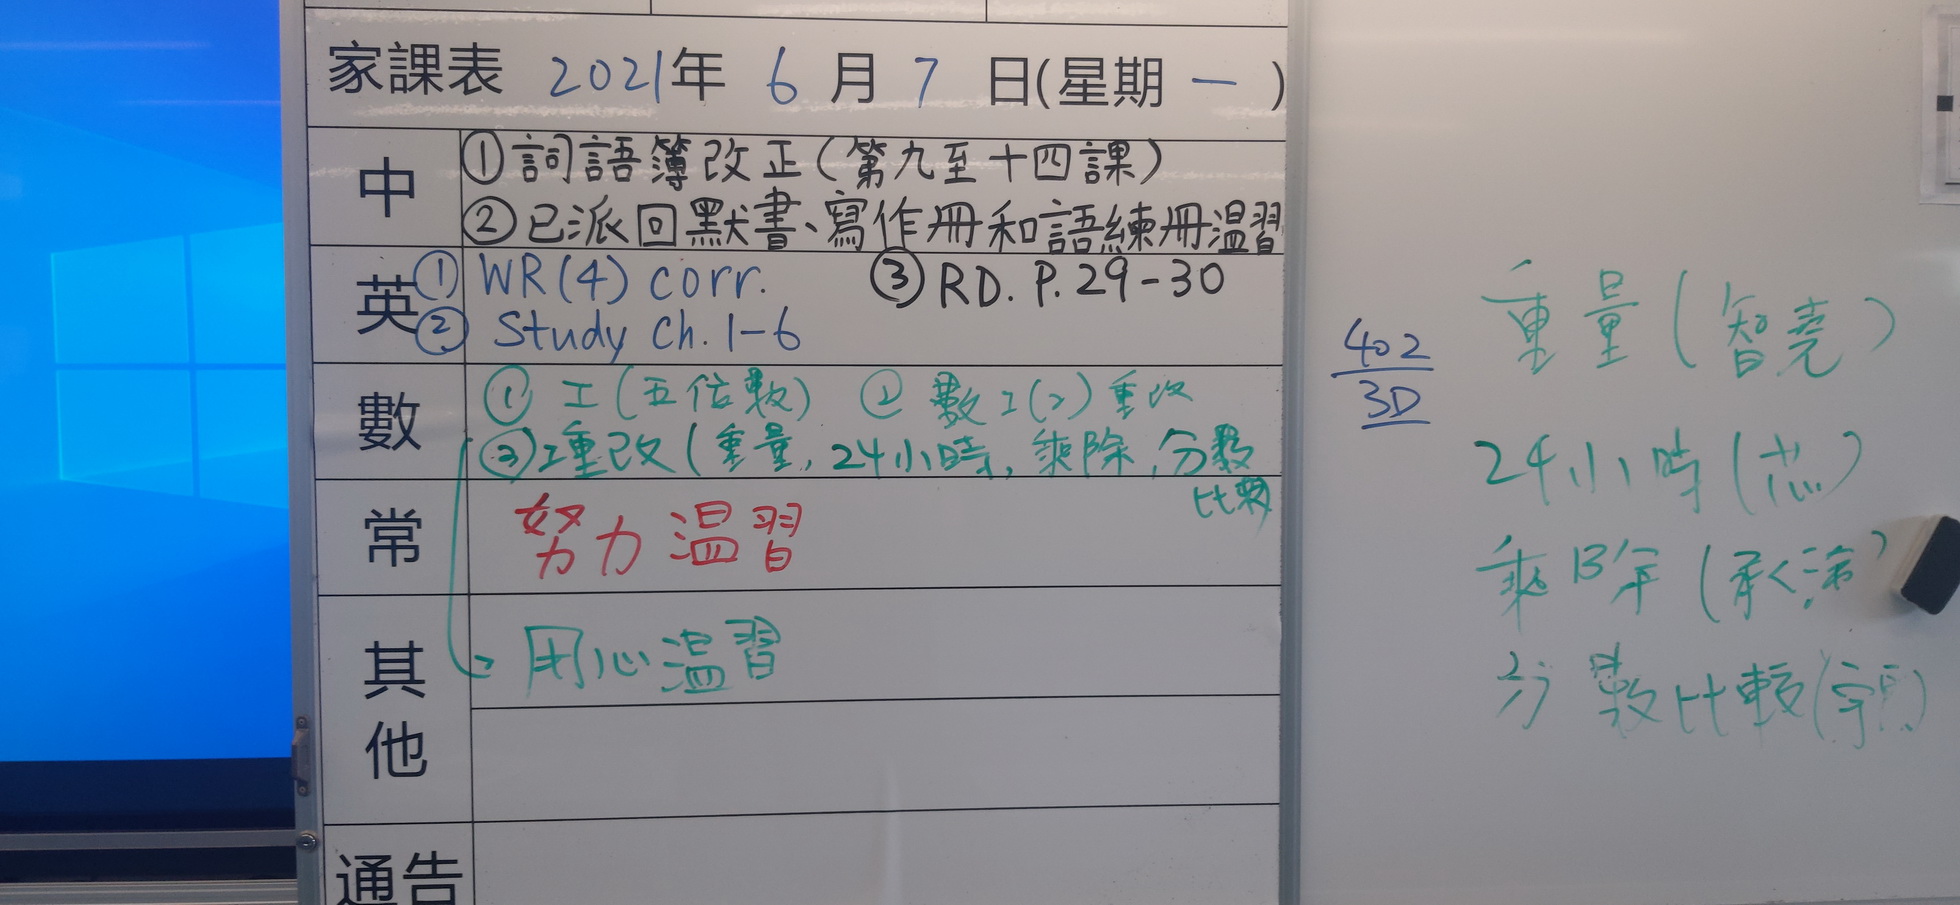 家課表 2021年 6 月 7 日(星期 一 )
中
①詞語簿改正(第九至十四課)
②已派回默書、寫作冊和語練冊温習
英
① WR(4) corr. ③ RD. P.29-30
② Study Ch. 1-6
數
① 工(五位數) ② 數工(2)重改
③工重改(重量, 24小時, 乘除, 分數
比較
常
努力温習
其他
用心温習
通告
402
3D
重量(智堯)
24小時(杰)
乘除(承
分數比較(宇